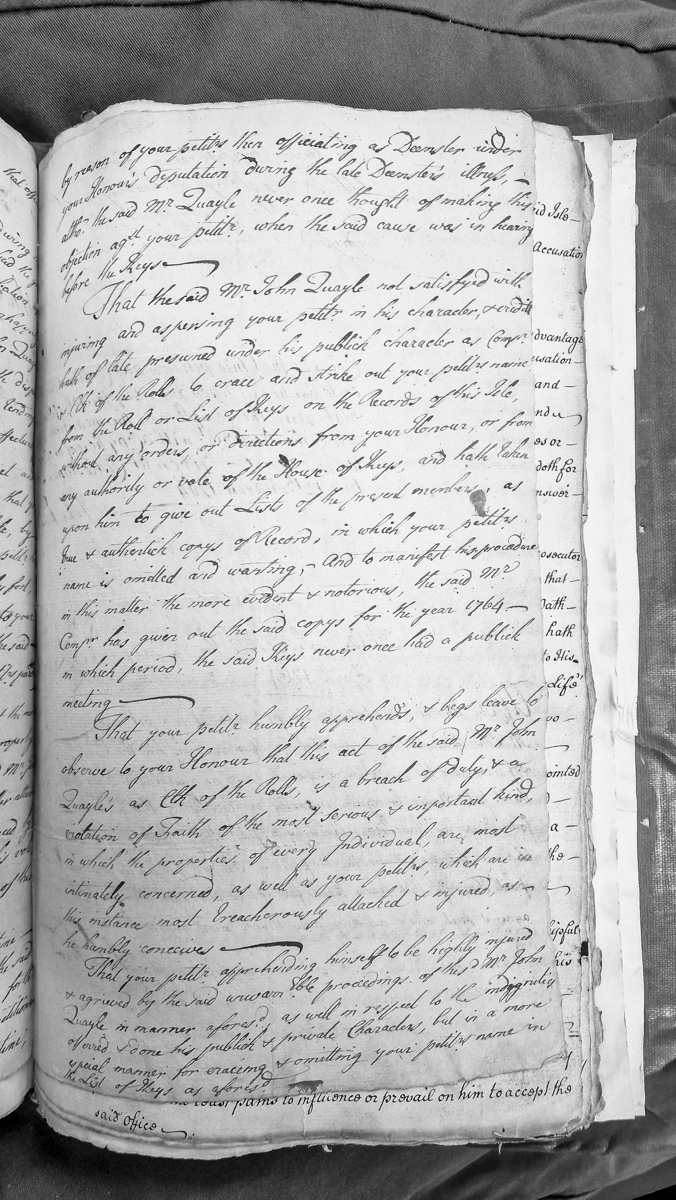 by reason of your petitrs then officiating as Deemster under
your Honour's deputation during the late Deemster's illness, –
altho' the said Mr Quayle never once thought of making this
objection agst your petitr, when the said cause was in hearing
before the Keys
That the said Mr John Quayle not satisfyed with
injuring and aspersing your petitr in his character, & credit
hath of late presumed under his publick character as Compr
& Clk of the Rolls to erace and strike out your petitrs name
from the Roll or List of Keys on the Records of this Isle,
without any orders, or directions from your Honour, or from
any authority or vote of the House of Keys, and hath taken
upon him to give out Lists of the present members, as
true & authentick copys of Record, in which your petitrs
name is omitted and wanting; – And to manifest his procedure
in this matter the more evident & notorious, the said Mr
Compr has given out the said copys for the year 1764 –
in which period, the said Keys never once had a publick
meeting
That your petitr humbly apprehends, & begs leave to
observe to your Honour that this act of the said Mr John
Quayle's as Clk of the Rolls, is a breach of duty, & a
violation of Faith of the most serious & important kind,
in which the properties of every Individual, are most
intimately concerned, as well as your petitrs, which are in
this instance most treacherously attacked & injured, as –
he humbly conceives
That your petitr apprehending himself to be highly injured
& agrieved by the said unwarrble proceedings of the sd Mr John
Quayle in manner aforesd as well in respect to the indignities
offered & done his publick & private Character, but in a more
special manner for eracing & omitting your petitrs name in
the List of Keys as aforesd
pains to influence or prevail on him to accept the
said Office
id Isle –
Accusation
dvantage
usation –
and –
nd
es or –
doth for
nswer –
osecutor
that –
Oath –
hath
to His
Life
oo –
ointed
a –
he –
lipful
his